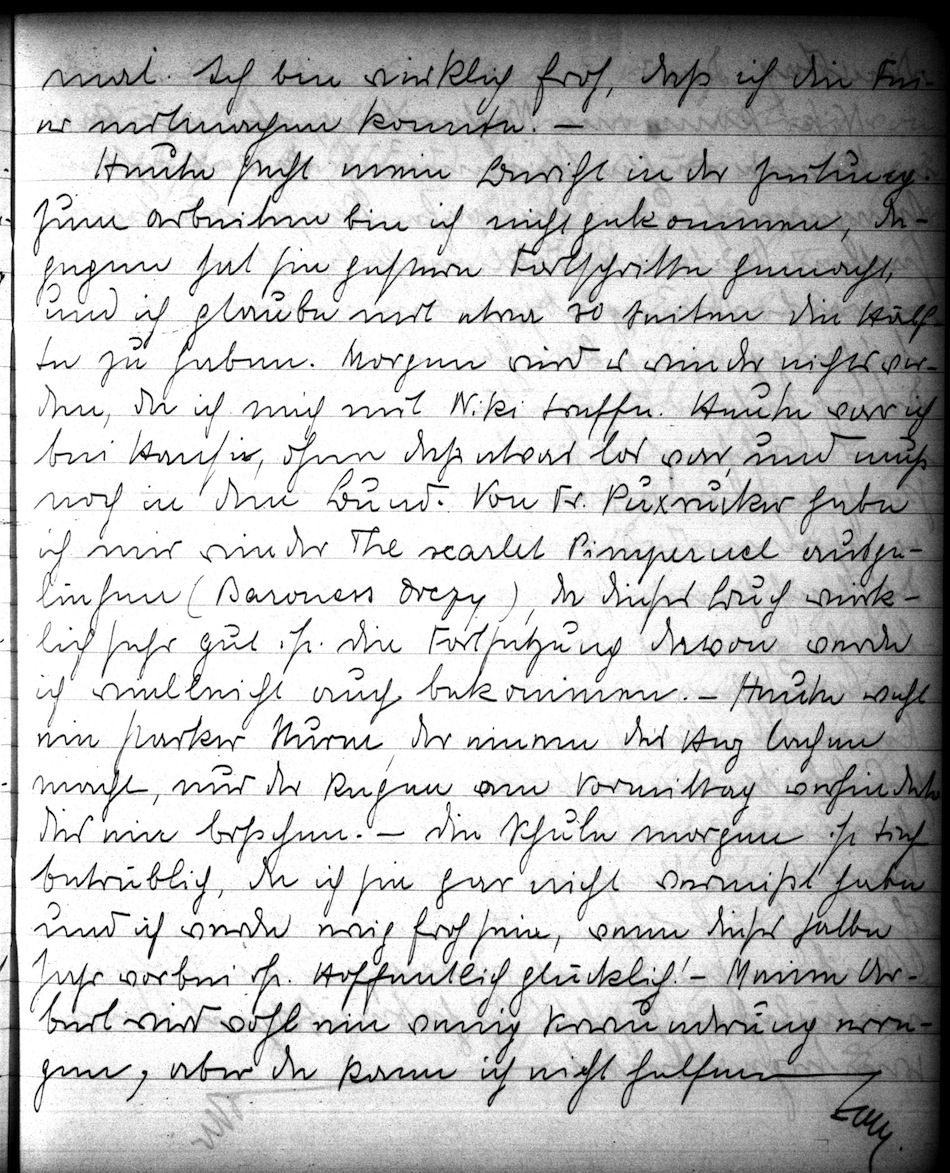 mal. Ich bin wirklich froh, daß ich die Fei-
er mitmachen konnte. —
Heute steht mein Bericht in der Zeitung.
Zum arbeiten bin ich nicht gekommen, da-
gegen hat sie gestern Fortschritte gemacht,
und ich glaube mit etwa 70 Seiten die Hälf-
te zu haben. Morgen wird es wieder nichts wer-
den, da ich mich mit Niki treffe. Heute war ich
bei Hansi, ohne daß etwas los war, und muß
noch in den Bund. Von Fr. Puxrucker habe
ich mir wieder The scarlet Pimpernel ausge-
liehen (Baroness Orczy), da dieses Buch wirk-
lich sehr gut ist. die Fortsetzung davon werde
ich vielleicht auch bekommen. — Heute weht
ein starker Sturm, der einem das Aug lachen
macht, nur der Regen am Vormittag verhinderte
das ein bißchen. — die Schule morgen ist tief
betrüblich, da ich sie gar nicht vermißt habe
und ich werde froh sein, wenn dieses halbe
Jahr vorbei ist. Hoffentlich glücklich! — Meine Ar-
beit wird wohl ein wenig Verwunderung erre-
gen, aber da kann ich nicht helfen